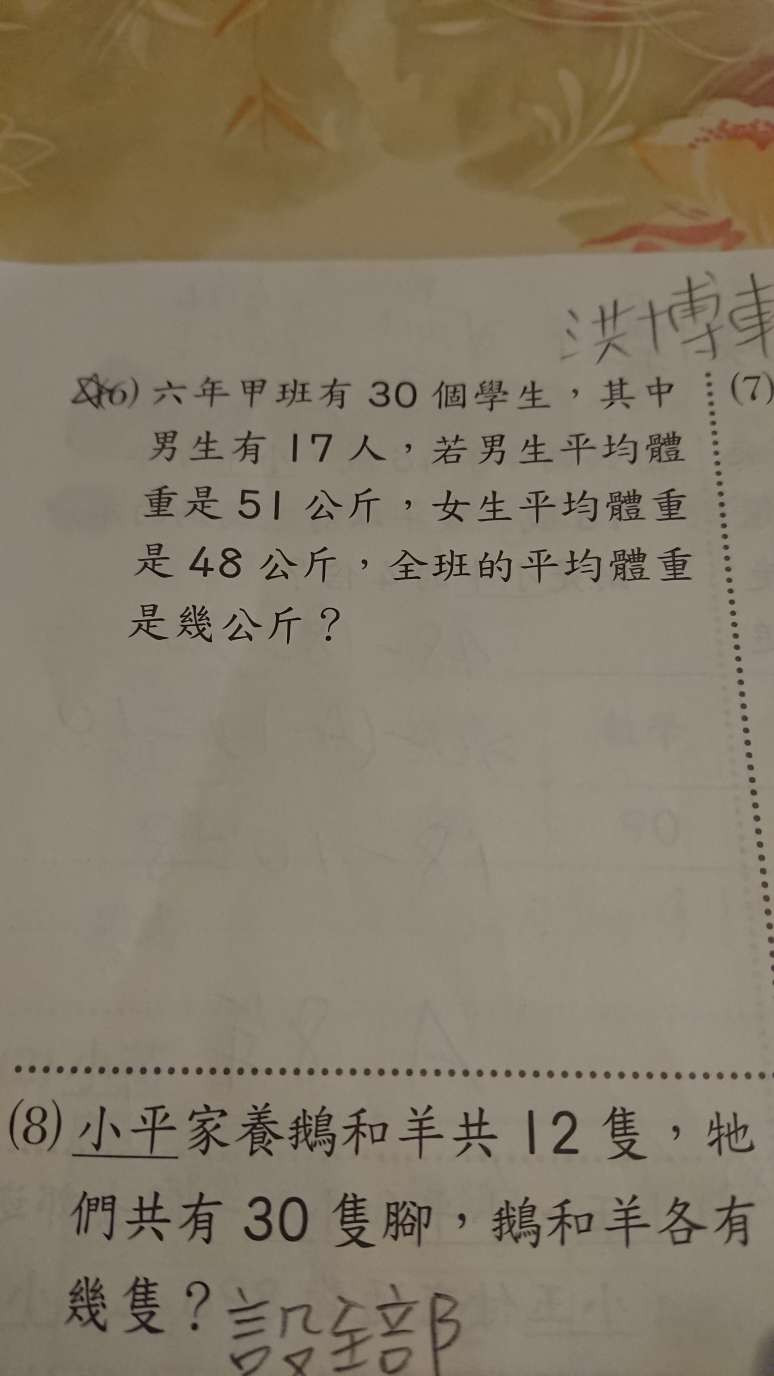 洪博
(6) 六年甲班有 30 個學生，其中
男生有 17 人，若男生平均體
重是 51 公斤，女生平均體重
是 48 公斤，全班的平均體重
是幾公斤？
(7)
(8) 小平家養鵝和羊共 12 隻，牠
們共有 30 隻腳，鵝和羊各有
幾隻？設全部